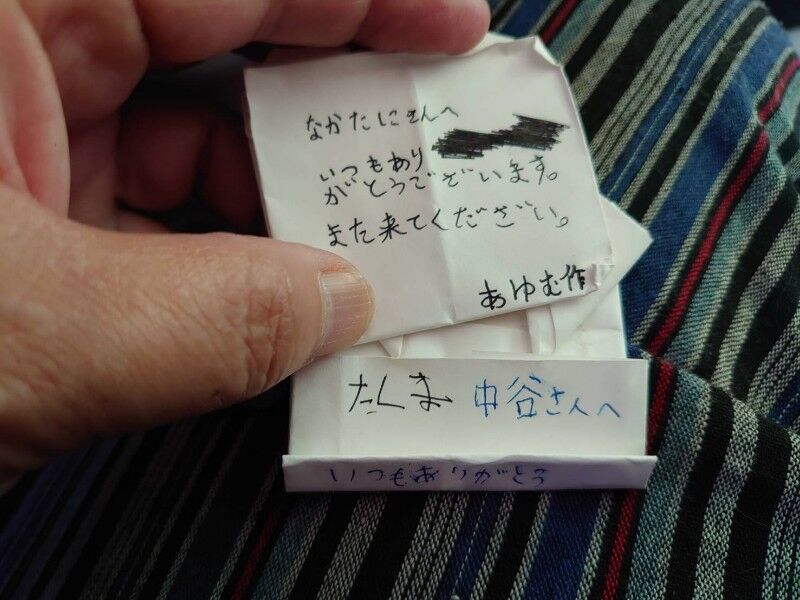 なかたにさんへ
いつもあり
がとうでございます。
また来てくださざい。
あゆむ作
たくま 中谷さんへ
いつもありがとう